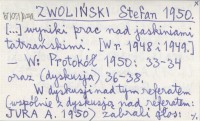 ZWOLIŃSKI Stefan 1950.
[...] wyniki prac nad jaskiniami
tatrzańskimi. [W r. 1948 i 1949.]
— W: Protokół 1950: 33-34
oraz (dyskusja) 36-38.
W dyskusji nad tym referatem
(wspólnie z dyskusją nad referatem:
JURA A. 1950) zabrali głos: